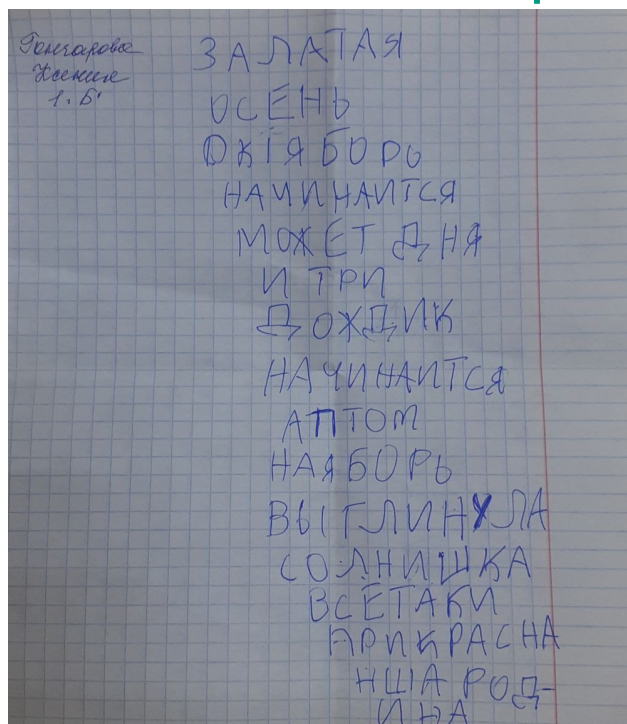 Гончарова
Ксения
1. Б.
ЗАЛАТАЯ
ОСЕНЬ
ОКТЯБОРЬ
НАЧИНАИТСЯ
МОЖЕТ ДНЯ
И ТРИ
ДОЖДИК
НАЧИНАИТСЯ
АПТОМ
НАЯБОРЬ
ВЫГЛИНУЛА
СОЛНИШКА
ВСЕТАКИ
ПРИКРАСНА
НША РОД-
ИНА